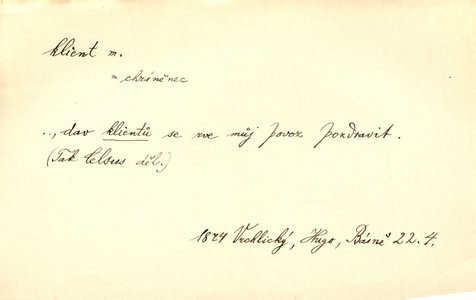 klient m.
= chráněnec
..., dav klientů se rve můj povoz pozdravit.
(Tak Celsus děl.)
1874 Vrchlický, Hugo, Básně 22.4.